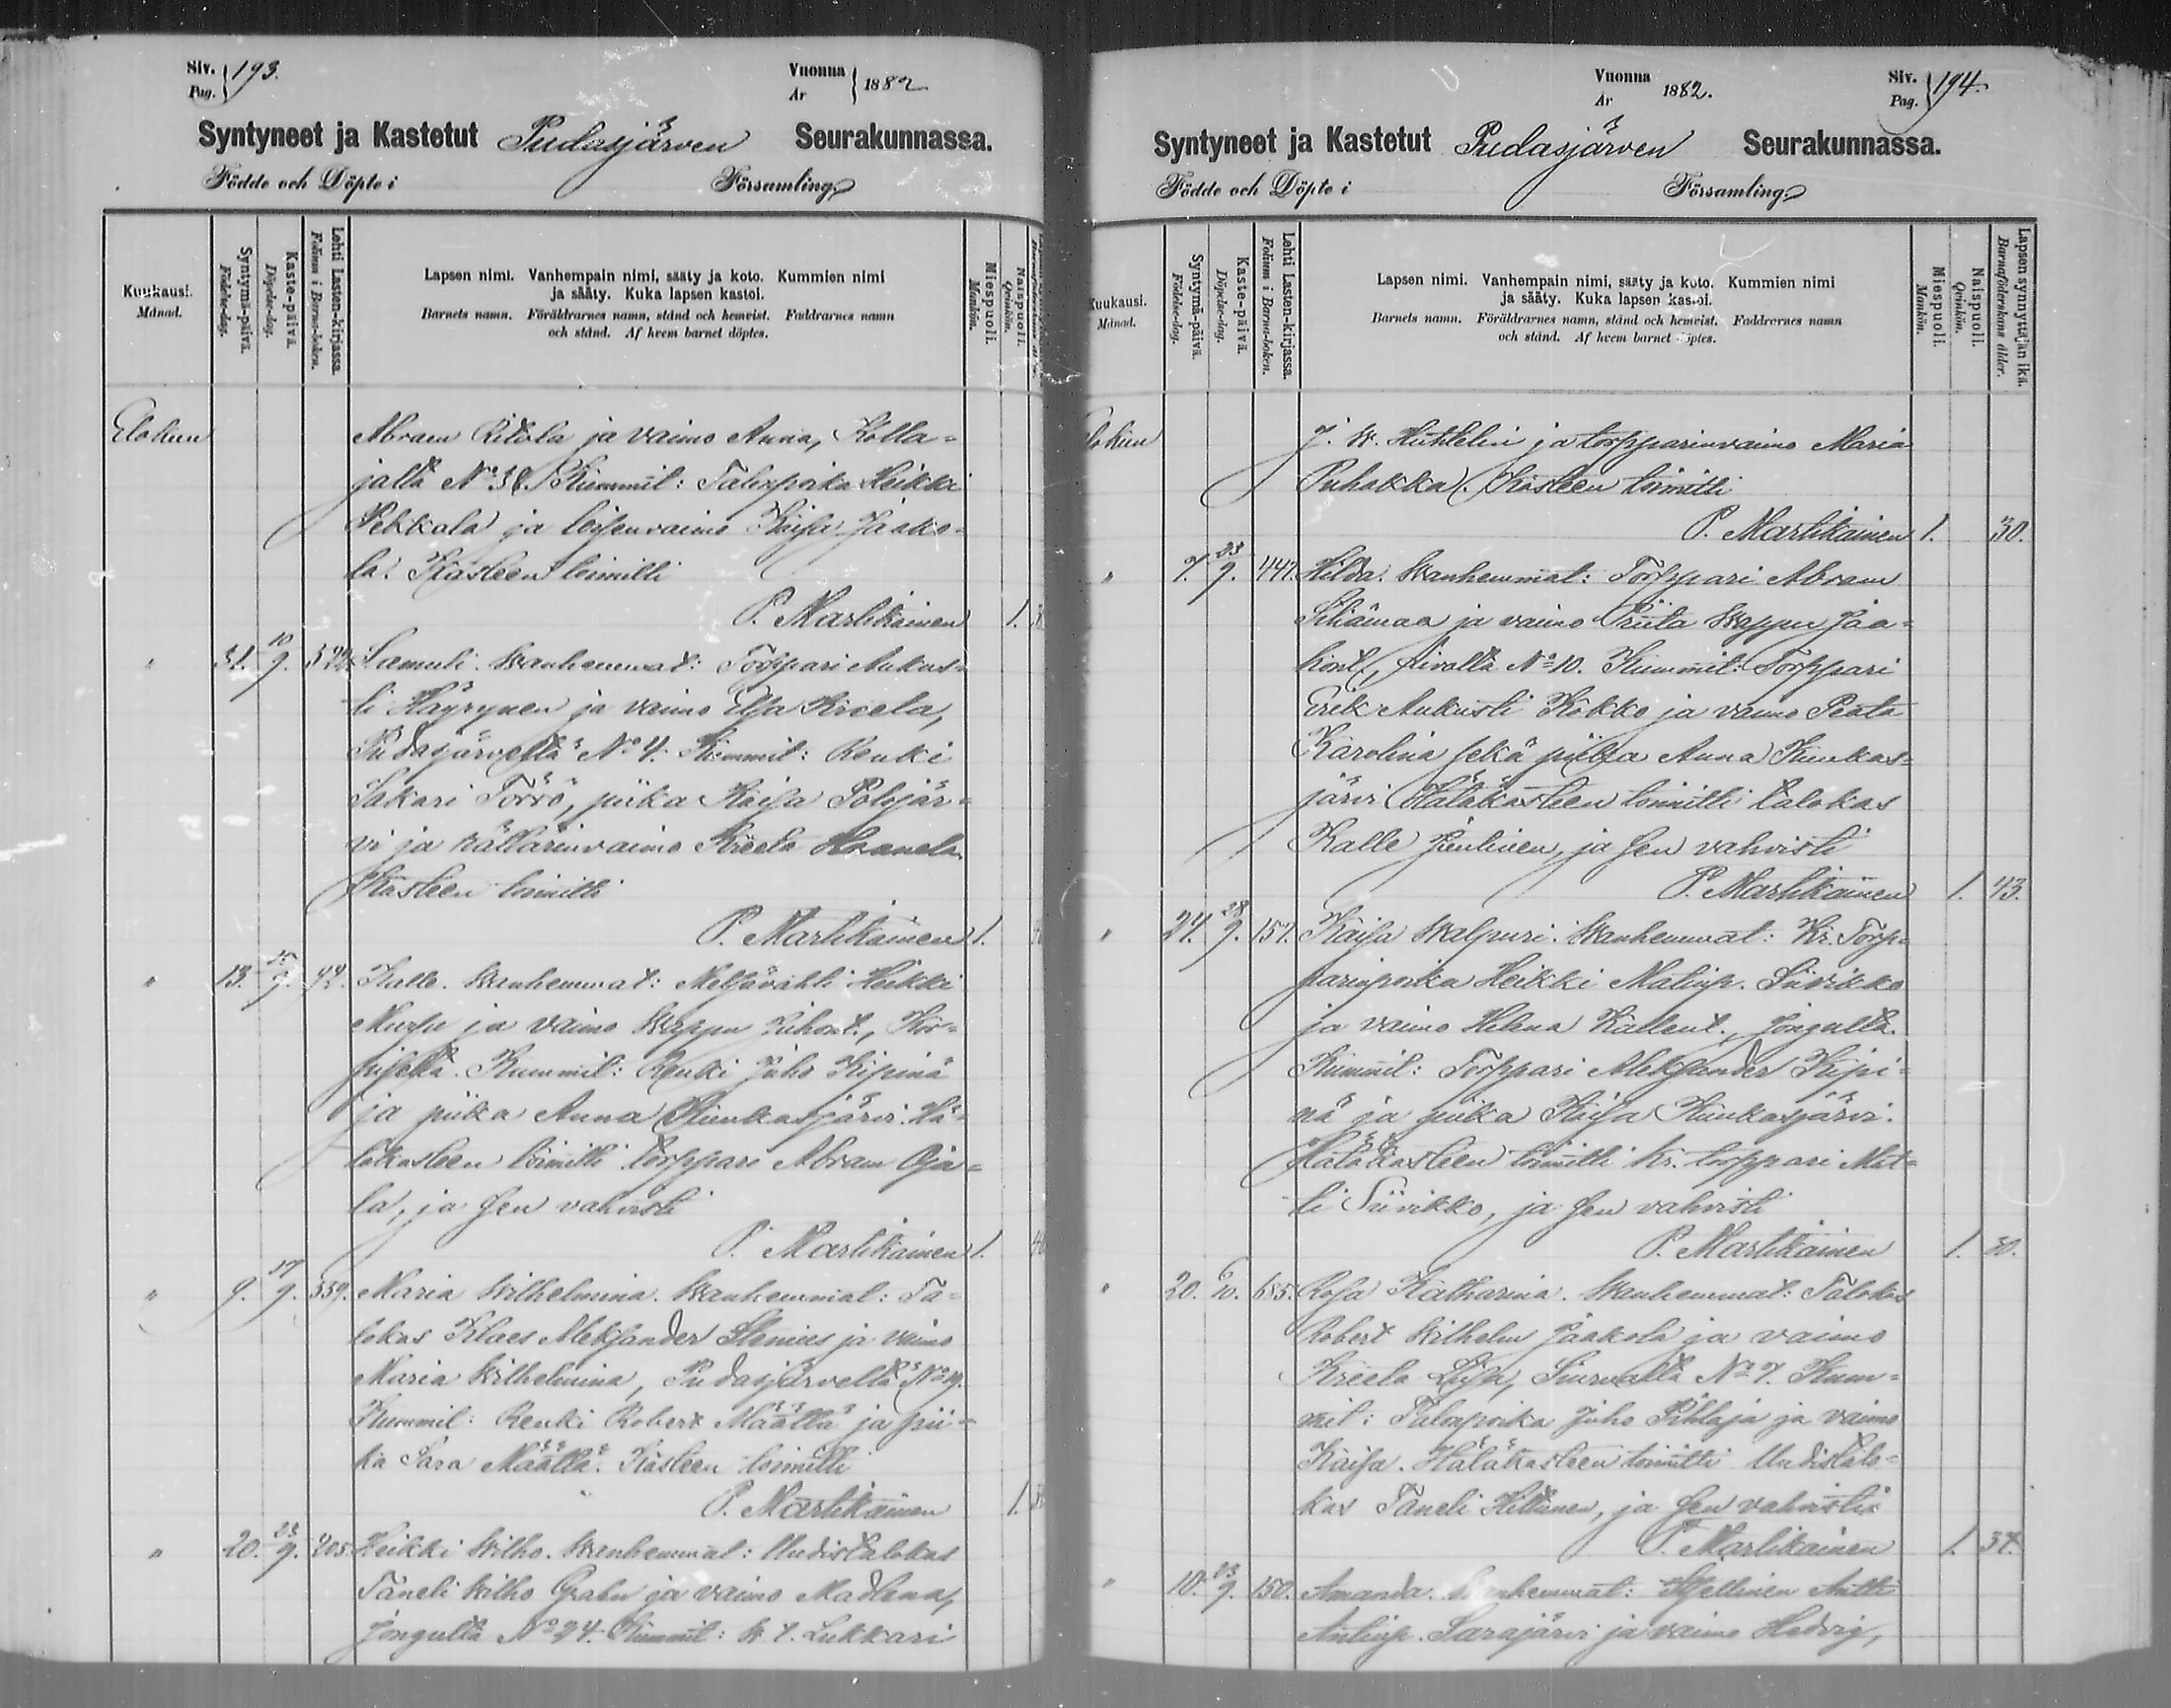 Siv. Pag. 193.
Vuonna År 1882
Syntyneet ja Kastetut Pudasjärven Seurakunnassa.
Födde och Döpte i Församling
Kuukausi. Månad.
Syntymä-päivä. Födelse-dag.
Kaste-päivä. Döpelse-dag.
Lehti Lasten-kirjassa. Folium i Barna-boken.
Lapsen nimi. Vanhempain nimi, sääty ja koto. Kummien nimi
ja sääty. Kuka lapsen kastoi.
Barnets namn. Föräldrarnes namn, stånd och hemvist. Faddrarnes namn
och stånd. Af hvem barnet döptes.
Miespuoli. Mankön.
Naispuoli. Qvinkön.
Elokuu Abram Ritola ja vaimo Anna, Kolla=
jalta No 38. Kummit: Talonpoika Heikki
Pekkala ja loisenvaimo Kaisa Jaako=
la. Kasteen toimitti
P. Martikainen 1.
" 31. 10/9. Samuli. Wanhemmat: Torppari Aukus=
ti Häyrynen ja vaimo Elsa Kreeta,
Pudasjärveltä No 4. Kummit: Renki
Sakari Törrö, piika Kaisa Polojär=
vi ja rättärinvaimo Kreeta Haanela.
Kasteen toimitti
P. Martikainen 1.
" 13. 9. 92. Kalle. Wanhemmat: Metsävahti Heikki
Murto ja vaimo Wappu Juhont., Kor=
pisella. Kummit: Renki Juho Kipinä
ja piika Anna Kiinkasjärvi. Hä=
täkasteen toimitti torppari Abram Oja=
la, ja sen vahvisti
P. Martikainen 1.
" 9. 17/9. 359. Maria Wilhelmina. Wanhemmat: Ta=
lokas Klaes Aleksander Stenius ja vaimo
Maria Wilhelmina, Pudasjärveltä No 19.
Kummit: Renki Robert Määttä ja pii=
ka Sara Määttä. Kasteen toimitti
P. Martikainen 1.
" 20. 23/9. 205. Heikki Wilho. Wanhemmat: Uudistalokas
Taneli Wilho Grahn ja vaimo Madlena,
Jongulta No 24. Kummit: W. t. Lukkari
Vuonna År 1882.
Siv. Pag. 194.
Syntyneet ja Kastetut Pudasjärven Seurakunnassa.
Födde och Döpte i Församling
Kuukausi. Månad.
Syntymä-päivä. Födelse-dag.
Kaste-päivä. Döpelse-dag.
Lehti Lasten-kirjassa. Folium i Barna-boken.
Lapsen nimi. Vanhempain nimi, sääty ja koto. Kummien nimi
ja sääty. Kuka lapsen kastoi.
Barnets namn. Föräldrarnes namn, stånd och hemvist. Faddrarnes namn
och stånd. Af hvem barnet döptes.
Miespuoli. Mankön.
Naispuoli. Qvinkön.
Lapsen synnyttäjän ikä. Barnaföderskans ålder.
lokuu J. W. Huhtelin ja torpparinvaimo Maria
Puhakka. Kasteen toimitti
P. Martikainen 1. 30.
" 7. 23/9. 447. Hilda. Wanhemmat: Torppari Abram
Sihämaa ja vaimo Priita Wappu Jaa=
kont., Livolta No 10. Kummit: Torppari
Erik Aukusti Kokko ja vaimo Peata
Karolina sekä piika Anna Kiinkas=
järvi. Hätäkasteen toimitti talokas
Kalle Puutinen, ja sen vahvisti
P. Martikainen 1. 43.
" 24. 28/9. 157. Kaisa Walpuri. Wanhemmat: Kr. Torp=
parinpoika Heikki Matinp. Siivikko
ja vaimo Helena Kallent., Jongulta.
Kummit: Torppari Aleksander Kipi=
nä ja piika Kaisa Kiinkasjärvi.
Hätäkasteen toimitti Kr. torppari Mat=
ti Siivikko, ja sen vahvisti
P. Martikainen 1. 30.
" 20. 6/10. 685. Rosa Katharina. Wanhemmat: Talokas
Robert Wilhelm Jaakola ja vaimo
Kreeta Liisa, Siurualta No 7. Kum=
mit: Talonpoika Juho Pihlaja ja vaimo
Kaisa. Hätäkasteen toimitti Uudistalo=
kas Taneli Hiltunen, ja sen vahvisti
P. Martikainen 1. 34.
" 10. 23/9. 150. Amanda. Wanhemmat: Itsellinen Antti
Antinp. Sarajärvi ja vaimo Hedvig,